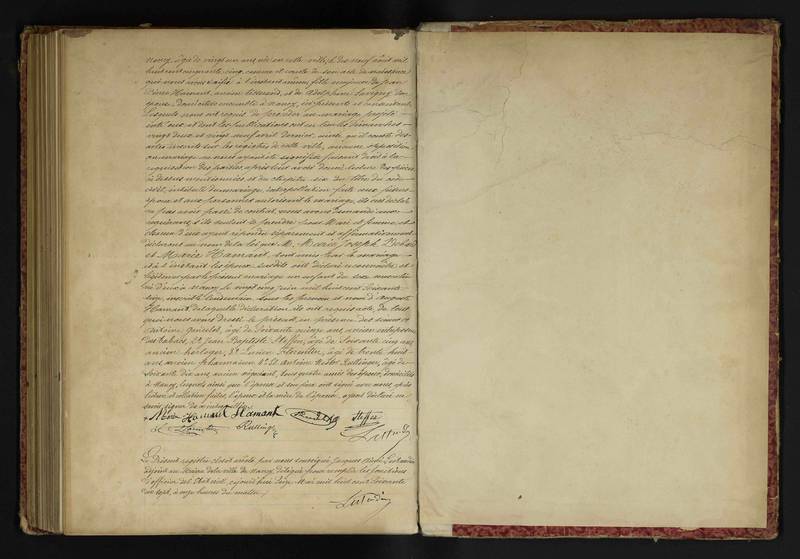 Nancy, âgée de vingt un ans, née en cette ville, le dix neuf août mil
huit cent quarante cinq, comme il conste de son acte de naissance
qui nous a été à l'instant même, fille majeure de Jean
Pierre Hamant, ancien tisserand, et de Adolphine Lavigny son
épouse, domiciliés ensemble à Nancy, ici présents et consentant.
Lesquels nous ont requis de procéder au mariage projeté
entre eux et dont les publications ont eu lieu les dimanches
vingt deux et vingt neuf avril dernier, ainsi qu'il conste des
actes inscrits sur les registres de cette ville, aucune opposition
au mariage ne nous ayant été signifiée faisant droit à la
réquisition des parties, après leur avoir donné lecture des pièces
ci dessus mentionnées et du chapitre six du titre du code
civil, intitulé du mariage, interpellation faite aux futurs
époux et aux personnes autorisant le mariage, ils ont déclaré
ne pas avoir passé de contrat, nous avons demandé aux
s'ils veulent se prendre pour Mari et femme, et
chacun d'eux ayant répondu séparément et affirmativement
déclarons au nom de la loi que M. Marie Joseph
et Marie Hamant, sont unis par le mariage
et à l'instant les époux susdits ont déclaré reconnaître et
légitimer par le présent mariage un enfant du sexe masculin
né d'eux à Nancy le vingt cinq juin mil huit cent soixante
six, inscrit le lendemain sous les prénom et nom d'Auguste
Hamant, de laquelle déclaration ils ont requis acte, de tout
quoi nous avons dressé le présent, en présence des sieurs 1°
Antoine âgé de soixante quinze ans, ancien entreposeur
des tabacs, 2° Jean Baptiste Steffen, âgé de soixante cinq ans
ancien horloger, 3° Lucien Florentin, âgé de trente huit
ans, ancien pharmacien, 4° et Antoine Rullinger, âgé de
soixante dix ans, ancien négociant, tous quatre amis des époux, domiciliés
à Nancy, lesquels ainsi que l'époux et son père ont signé avec nous, après
lecture et collation faites, l'épouse et la mère de l'épouse, ayant déclaré ne
savoir signer de ce interpellées
Hamant Hamant Steffen
Florentin Rulling
Le Présent registre clos et arrêté par nous soussigné Jacques
adjoint au Maire de la ville de Nancy, délégué pour remplir les fonctions
d'officier de l'état civil, ce jourd'hui seize Mai mil huit cent soixante
sept, à onze heures du matin